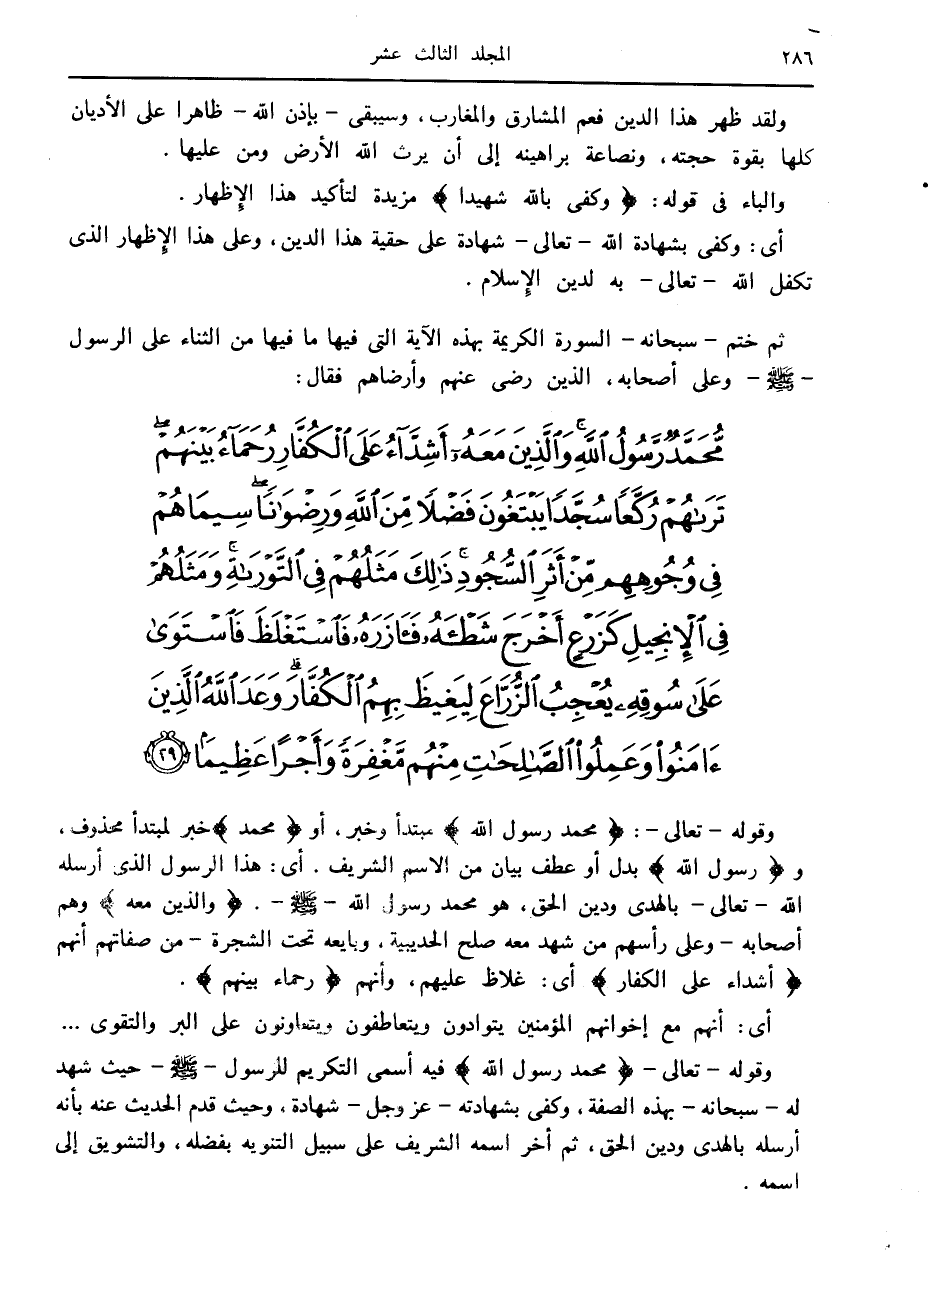 ٢٨٦ المجلد الثالث عشر
ولقد ظهر هذا الدين فعم المشارق والمغارب، وسيبقى - بإذن الله - ظاهرا على الأديان
كلها بقوة حجته، ونصاعة براهينه إلى أن يرث الله الأرض ومن عليها .
والباء فى قوله: ﴿ وكفى بالله شهيدا ﴾ مزيدة لتأكيد هذا الإظهار .
أى: وكفى بشهادة الله - تعالى - شهادة على حقية هذا الدين، وعلى هذا الإظهار الذى
تكفل الله - تعالى - به لدين الإسلام .
ثم ختم - سبحانه - السورة الكريمة بهذه الآية التى فيها ما فيها من الثناء على الرسول
- ﷺ - وعلى أصحابه، الذين رضى عنهم وأرضاهم فقال:
مُّحَمَّدٌ رَّسُولُ ٱللَّهِ ۚ وَٱلَّذِينَ مَعَهُۥٓ أَشِدَّآءُ عَلَى ٱلْكُفَّارِ رُحَمَآءُ بَيْنَهُمْ ۖ
تَرَىٰهُمْ رُكَّعًا سُجَّدًا يَبْتَغُونَ فَضْلًا مِّنَ ٱللَّهِ وَرِضْوَٰنًا ۖ سِيمَاهُمْ
فِى وُجُوهِهِم مِّنْ أَثَرِ ٱلسُّجُودِ ۚ ذَٰلِكَ مَثَلُهُمْ فِى ٱلتَّوْرَىٰةِ ۚ وَمَثَلُهُمْ
فِى ٱلْإِنجِيلِ كَزَرْعٍ أَخْرَجَ شَطْـَٔهُۥ فَـَٔازَرَهُۥ فَٱسْتَغْلَظَ فَٱسْتَوَىٰ
عَلَىٰ سُوقِهِۦ يُعْجِبُ ٱلزُّرَّاعَ لِيَغِيظَ بِهِمُ ٱلْكُفَّارَ ۗ وَعَدَ ٱللَّهُ ٱلَّذِينَ
ءَامَنُوا۟ وَعَمِلُوا۟ ٱلصَّـٰلِحَـٰتِ مِنْهُم مَّغْفِرَةً وَأَجْرًا عَظِيمًۢا ٢٩
وقوله - تعالى -: ﴿ محمد رسول الله ﴾ مبتدأ وخبر، أو ﴿ محمد ﴾ خبر لمبتدأ محذوف،
و ﴿ رسول الله ﴾ بدل أو عطف بيان من الاسم الشريف . أى: هذا الرسول الذى أرسله
الله - تعالى - بالهدى ودين الحق، هو محمد رسول الله - ﷺ - . ﴿ والذين معه ﴾ وهم
أصحابه - وعلى رأسهم من شهد معه صلح الحديبية، وبايعه تحت الشجرة - من صفاتهم أنهم
﴿ أشداء على الكفار ﴾ أى: غلاظ عليهم، وأنهم ﴿ رحماء بينهم ﴾ .
أى: أنهم مع إخوانهم المؤمنين يتوادون ويتعاطفون ويتعاونون على البر والتقوى ...
وقوله - تعالى - ﴿ محمد رسول الله ﴾ فيه أسمى التكريم للرسول - ﷺ - حيث شهد
له - سبحانه - بهذه الصفة، وكفى بشهادته - عز وجل - شهادة، وحيث قدم الحديث عنه بأنه
أرسله بالهدى ودين الحق، ثم أخر اسمه الشريف على سبيل التنويه بفضله، والتشويق إلى
اسمه .